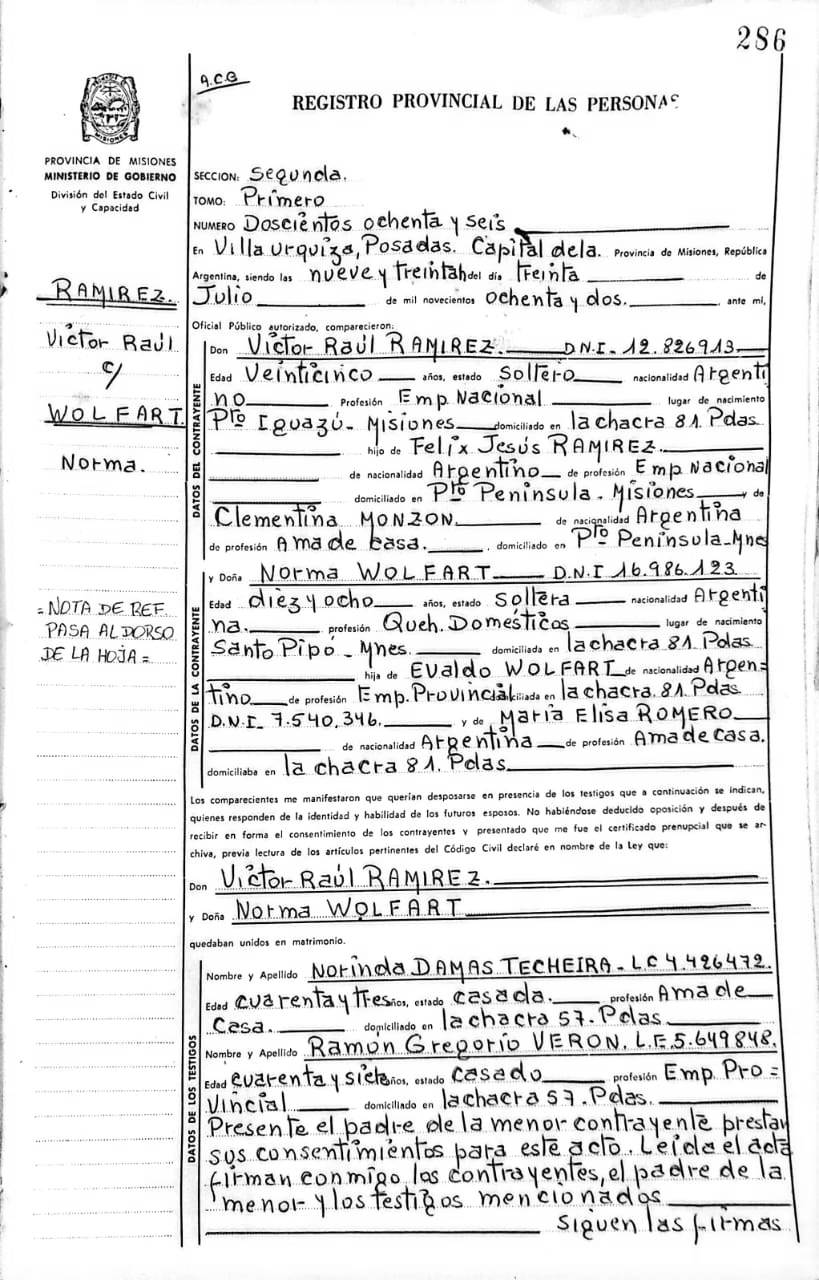 286
A.C.G
REGISTRO PROVINCIAL DE LAS PERSONAS
PROVINCIA DE MISIONES
MINISTERIO DE GOBIERNO
División del Estado Civil
y Capacidad
RAMIREZ.
Victor Raúl
c/
WOLFART.
Norma.
=NOTA DE REF.
PASA AL DORSO
DE LA HOJA=
SECCION: Segunda.
TOMO: Primero
NUMERO Doscientos ochenta y seis
En Villa urquiza, Posadas. Capital de la. Provincia de Misiones, República
Argentina, siendo las nueve y treinta h del día treinta de
Julio de mil novecientos ochenta y dos. , ante mí,
Oficial Público autorizado, comparecieron:
DATOS DEL CONTRAYENTE
Don Victor Raúl RAMIREZ. D.N.I. 12.826913
Edad Veinticinco años, estado Soltero nacionalidad Argenti
no Profesión Emp Nacional lugar de nacimiento
Pto Iguazú- Misiones domiciliado en la chacra 81. Pdas
hijo de Felix Jesús RAMIREZ.
de nacionalidad Argentino de profesión Emp Nacional
domiciliado en Pto Peninsula. Misiones y de
Clementina MONZON. de nacionalidad Argentina
de profesión Ama de casa. , domiciliado en Pto Peninsula-Mnes
DATOS DE LA CONTRAYENTE
y Doña Norma WOLFART D.N.I 16.986.123
Edad diez y ocho años, estado Soltera nacionalidad Argenti
na. profesión Queh. Domésticos lugar de nacimiento
Santo Pipó - Mnes. domiciliado en la chacra 81. Pdas
hija de Evaldo WOLFART de nacionalidad Argen=
tino de profesión Emp. Provincial domiciliada en la chacra. 81. Pdas
D.N.I. 7.540.346. y de Maria Elisa ROMERO
de nacionalidad Argentina de profesión Ama de casa.
domiciliaba en la chacra 81. Pdas
Los comparecientes me manifestaron que querían desposarse en presencia de los testigos que a continuación se indican,
quienes responden de la identidad y habilidad de los futuros esposos. No habiéndose deducido oposición y después de
recibir en forma el consentimiento de los contrayentes y presentado que me fue el certificado prenupcial que se ar-
chiva, previa lectura de los artículos pertinentes del Código Civil declaré en nombre de la Ley que:
Don Victor Raúl RAMIREZ.
y Doña Norma WOLFART
quedaban unidos en matrimonio.
DATOS DE LOS TESTIGOS
Nombre y Apellido Norinda DAMAS TECHEIRA. L.C 4.426472.
Edad cuarenta y tres años, estado casada. profesión Ama de
Casa. domiciliado en la chacra 57. Pdas
Nombre y Apellido Ramón Gregorio VERON. L.E.5.649848.
Edad cuarenta y siete años, estado casado profesión Emp Pro=
vincial domiciliado en la chacra 57. Pdas.
Presente el padre de la menor contrayente prestan
sus consentimientos para este acto. Leida el acta
firman conmigo los contrayentes, el padre de la
menor y los testigos mencionados
Siguen las firmas